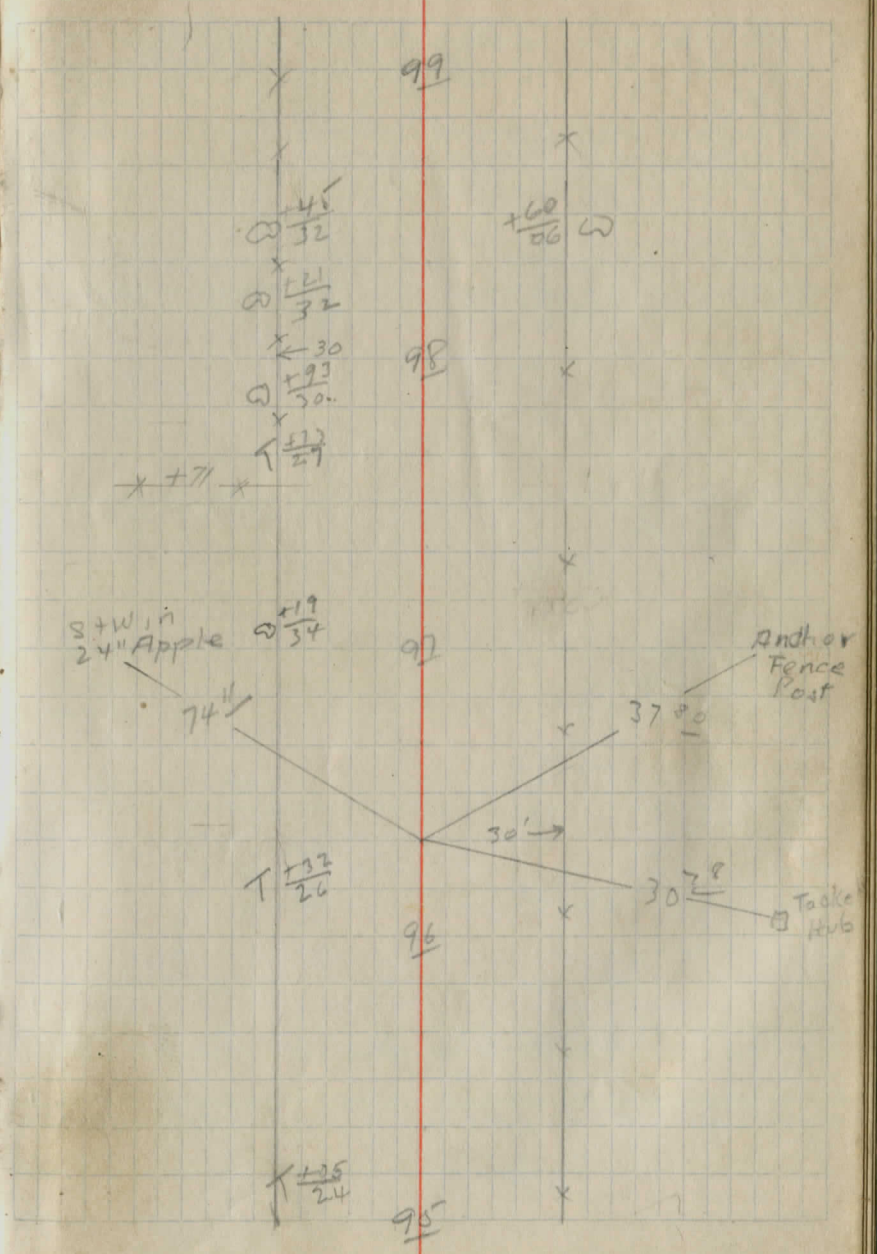 99
+45
32
+60
06
+21
32
30
98
+93
30.
29
+71
+19
34
S+W in
24" Apple
97
Anchor
Fence
Post
74
37 80
30'
+32
26
30 78
Tacke
Hub
96
+05
24
95